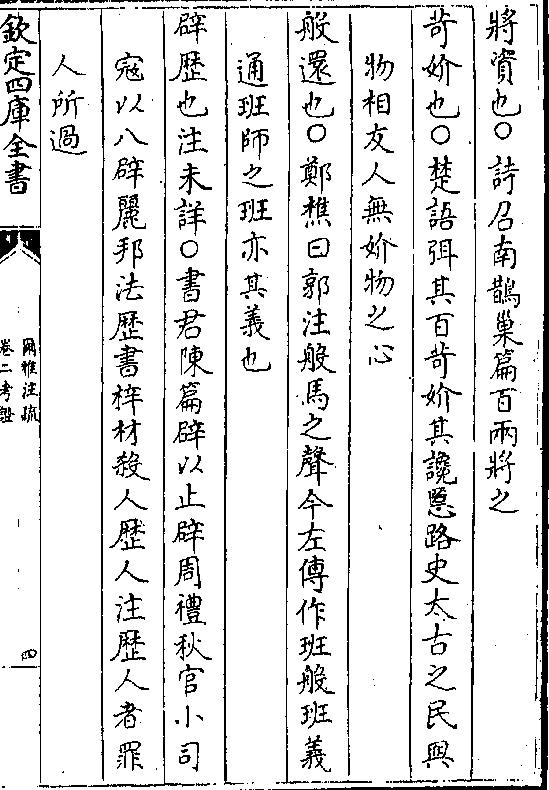 將資也○詩召南鵲巢篇百兩將之
苛妎也○楚語弭其百苛妎其讒慝路史太古之民與
物相友人無妎物之心
般還也○鄭樵曰郭注般馬之聲今左傳作班般班義
通班師之班亦其義也
辟歷也注未詳○書君陳篇辟以止辟周禮秋官小司
寇以八辟麗邦法歷書梓材殺人歷人注歷人者罪
人所過
欽定四庫全書
爾雅注疏
卷二考證
四